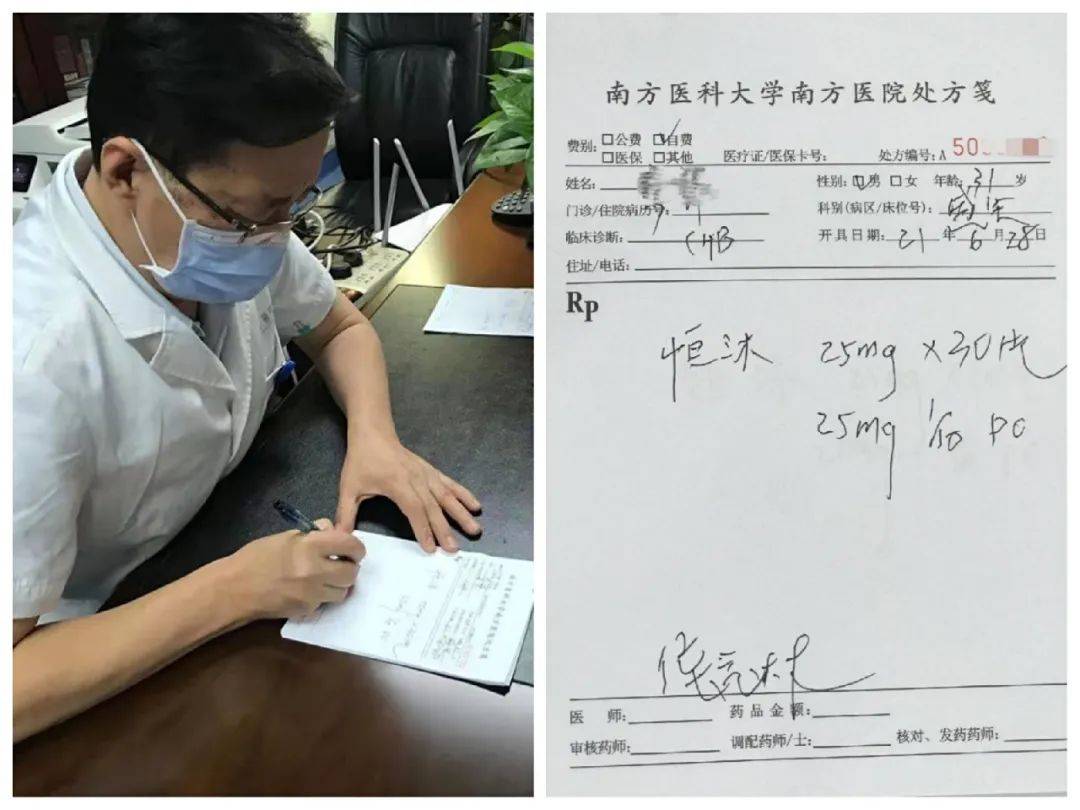 南方医科大学南方医院处方笺
费别: □公费 ☑自费
□医保 □其他 医疗证/医保卡号: 处方编号: A 50
姓名: 性别: ☑男 □女 年龄: 31 岁
门诊/住院病历号: 科别(病区/床位号):
临床诊断: CHB 开具日期: 21 年 6 月 28 日
住址/电话:
Rp
恒沐 25mg × 30片
25mg po
医 师: 药品金额:
审核药师: 调配药师/士: 核对、发药药师: